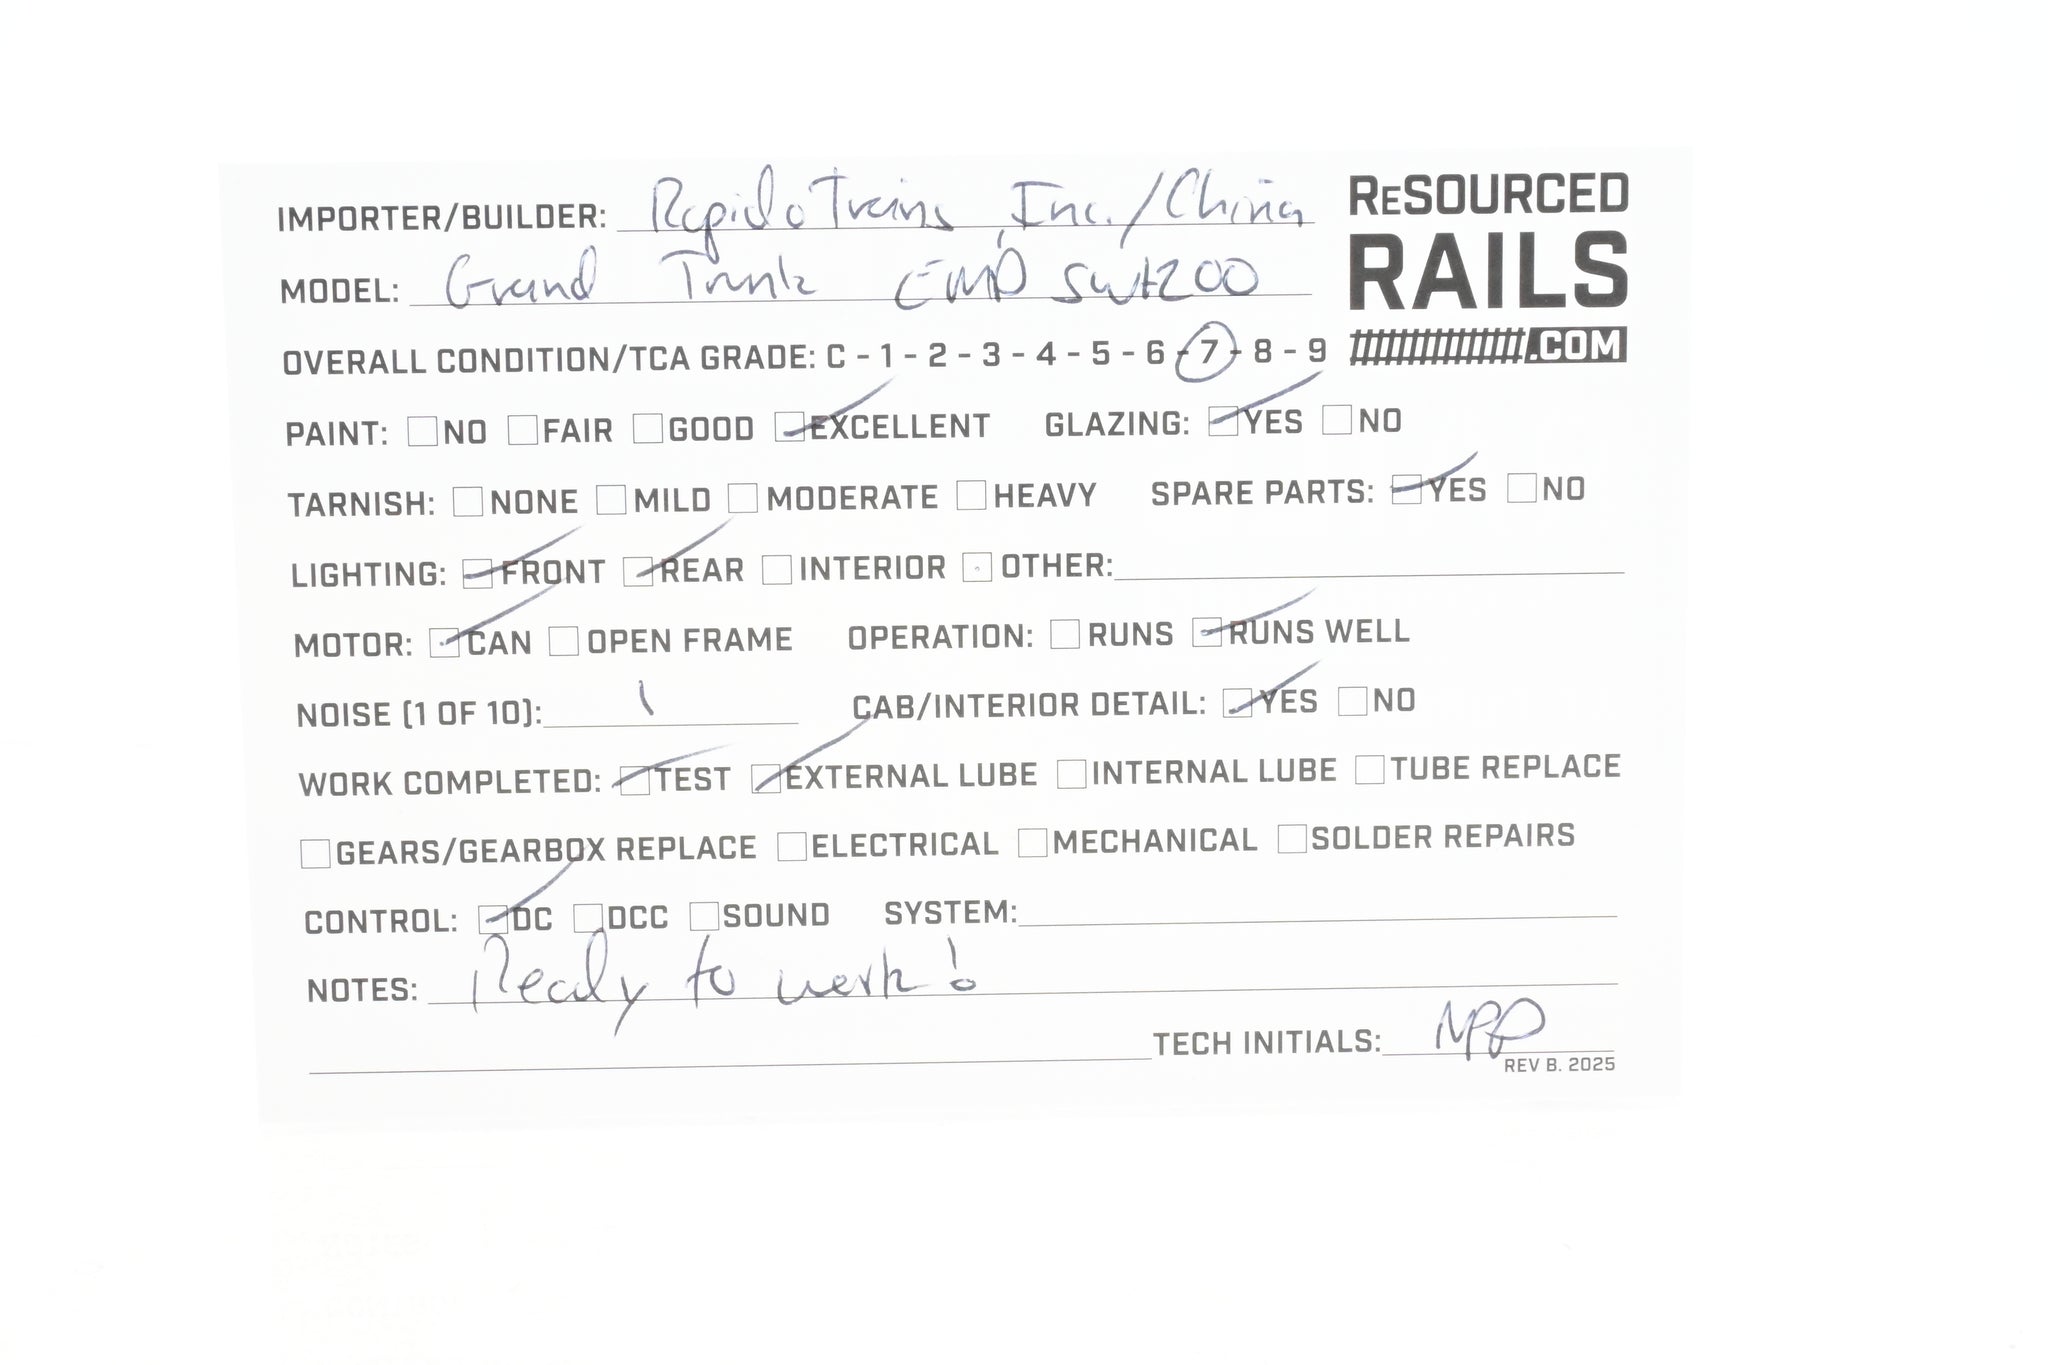 IMPORTER/BUILDER: Rapido Trains, Inc./China
ReSOURCED
RAILS
.COM
MODEL: Grand Trunk EMD SW1200
OVERALL CONDITION/TCA GRADE: C - 1 - 2 - 3 - 4 - 5 - 6 - 7 - 8 - 9
PAINT: NO FAIR GOOD EXCELLENT GLAZING: YES NO
TARNISH: NONE MILD MODERATE HEAVY SPARE PARTS: YES NO
LIGHTING: FRONT REAR INTERIOR OTHER:
MOTOR: CAN OPEN FRAME OPERATION: RUNS RUNS WELL
NOISE (1 OF 10): 1 CAB/INTERIOR DETAIL: YES NO
WORK COMPLETED: TEST EXTERNAL LUBE INTERNAL LUBE TUBE REPLACE
GEARS/GEARBOX REPLACE ELECTRICAL MECHANICAL SOLDER REPAIRS
CONTROL: DC DCC SOUND SYSTEM:
NOTES: Ready to work!
TECH INITIALS:
REV B. 2025